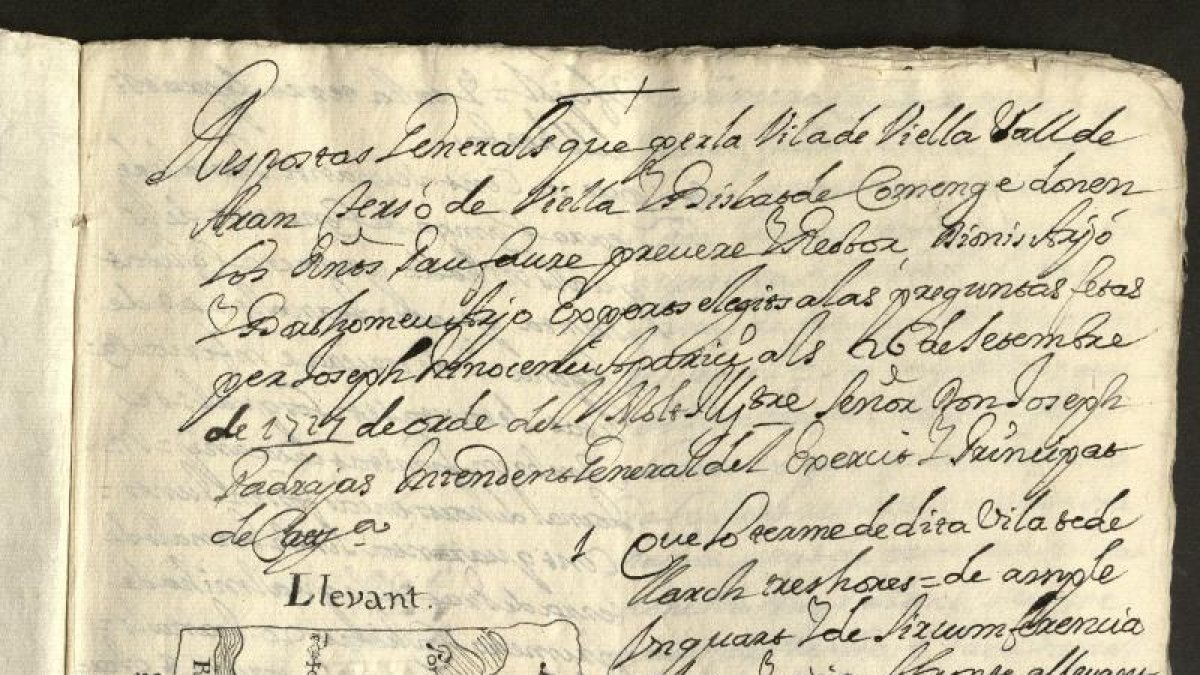 Respostas Generals que per la Vila de Viella Vall de
Aran Terso de Viella y Bisbat de Comenge donen
los Rñts Pau faure prevere y Rector, Dionis Arjó
y Barthomeu Arjó Experts elegits a las preguntas fetas
per Joseph Innocenci Aparicy als 26 de Setembre
de 1717 de orde del Molt Illstre Señor Don Joseph
Padrajas Intendent General del Exercit y Principat
de Catt.ª
1 Que lo terme de dita Vila te de
Llarch tres hores = de ample
Llevant.
un quart y de Sircumferencia